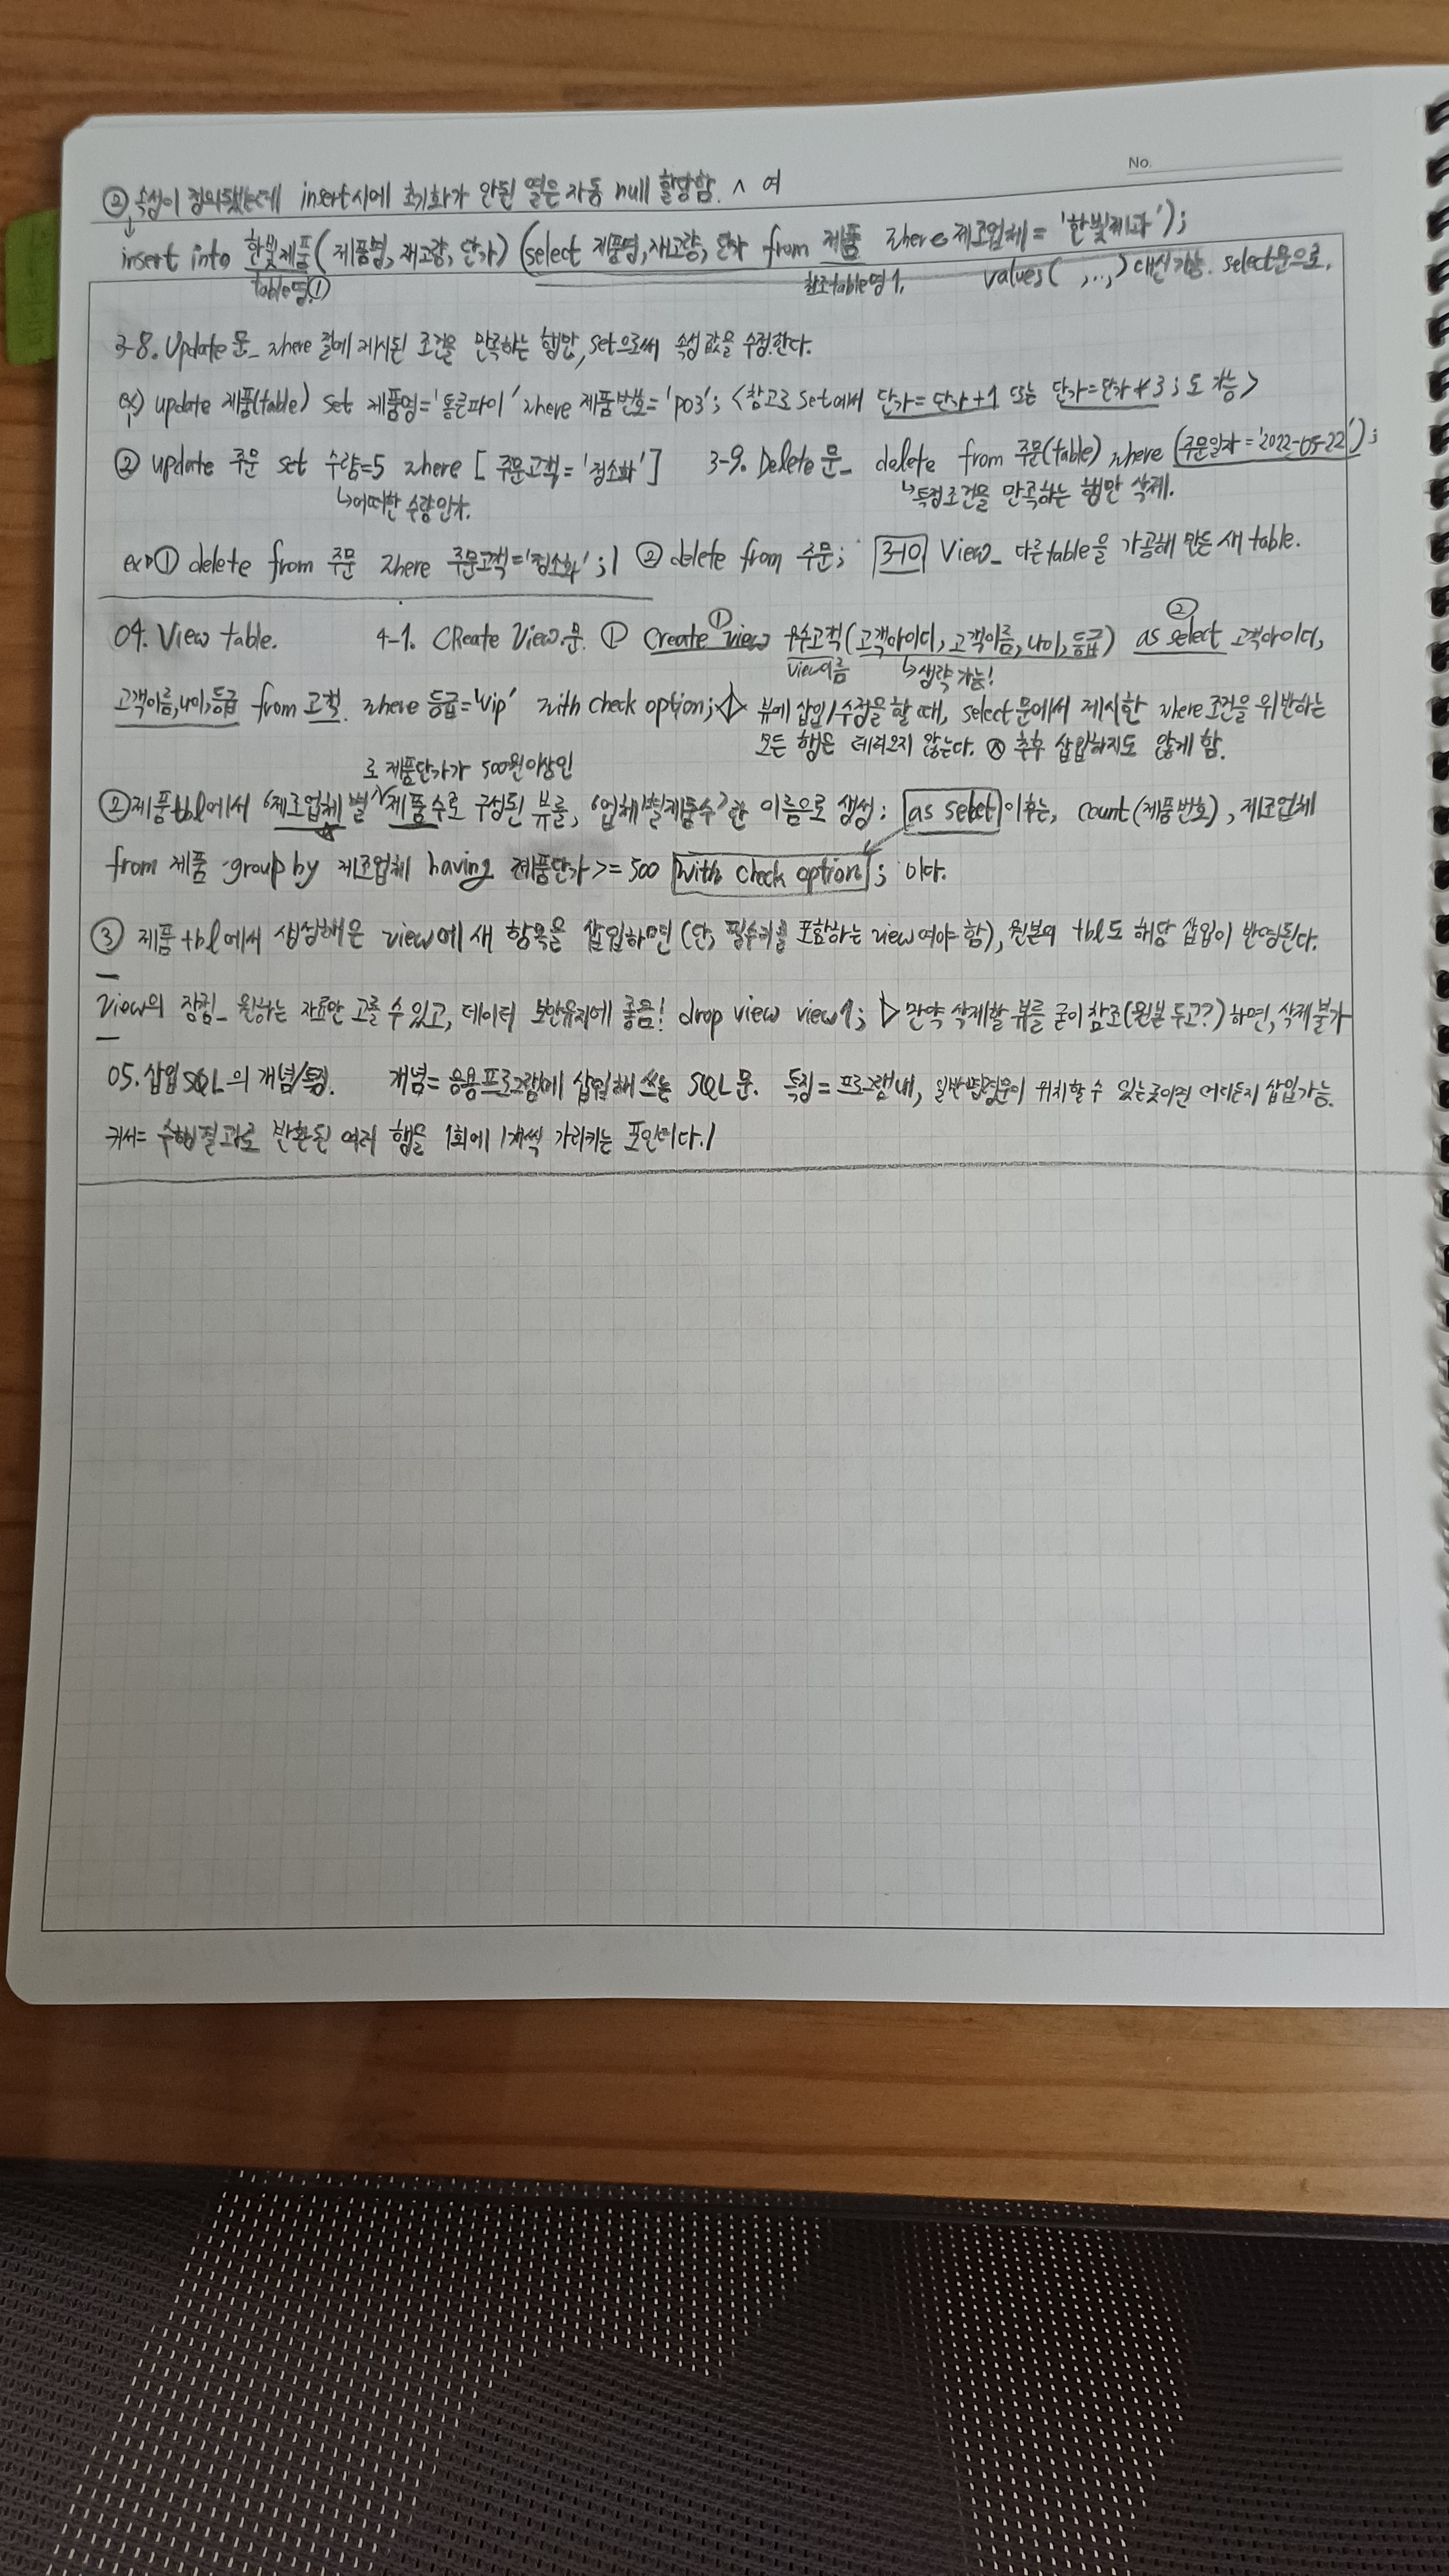 No.
② 속성이 정의됐는데 insert시에 초기화가 안된 열은 자동 null 할당함. ^ 여
insert into 한빛제품(제품명, 재고량, 단가) (select 제품명, 재고량, 단가 from 제품 where 제조업체 = '한빛제과');
table명① 참조table명1. values( ,..,) 대신가능. select문으로.
3-8. Update 문_ where 절에 제시된 조건을 만족하는 행만, set으로써 속성값을 수정한다.
ex) update 제품(table) set 제품명='통큰파이' where 제품번호='p03'; <참고로 set에서 단가=단가+1 또는 단가=단가*3; 도 가능>
② update 주문 set 수량=5 where [ 주문고객='정소화' ] 3-9. Delete 문_ delete from 주문(table) where (주문일자='2022-05-22');
↳어떠한 수량인가. ↳특정조건을 만족하는 행만 삭제.
ex)① delete from 주문 where 주문고객='정소화'; | ② delete from 주문; 3-10 View_ 다른table을 가공해 만든 새 table.
① ②
04. View table. 4-1. CReate View.문 ① Create view 우수고객(고객아이디, 고객이름, 나이, 등급) as select 고객아이디,
view이름 ↳생략가능!
고객이름, 나이, 등급 from 고객. where 등급='vip' with check option; 뷰에 삽입/수정을 할 때, select문에서 제시한 where조건을 위반하는
모든 행은 데려오지 않는다. 추후 삽입하지도 않게 함.
로 제품단가가 500원이상인
②제품tbl에서 '제조업체 별 제품수로 구성된 뷰를, '업체별제품수'란 이름으로 생성: as select 이후는, count(제품번호), 제조업체
from 제품 group by 제조업체 having 제품단가>=500 with check option; 이다.
③ 제품 tbl에서 생성해온 view에 새 항목을 삽입하면(단, 필수키를 포함하는 view여야 함), 원본의 tbl도 해당 삽입이 반영된다.
View의 장점_ 원하는 자료만 고를 수 있고, 데이터 보안유지에 좋음! drop view view1; ▷ 만약 삭제할 뷰를 굳이 참조(원본 두고??)하면, 삭제불가
05. 삽입SQL의 개념/특징. 개념= 응용프로그램에 삽입해 쓰는 SQL문. 특징= 프로그램내, 일반명령문이 위치할 수 있는곳이면 어디든지 삽입가능.
커서= 수행결과로 반환된 여러 행을 1회에 1개씩 가리키는 포인터다.